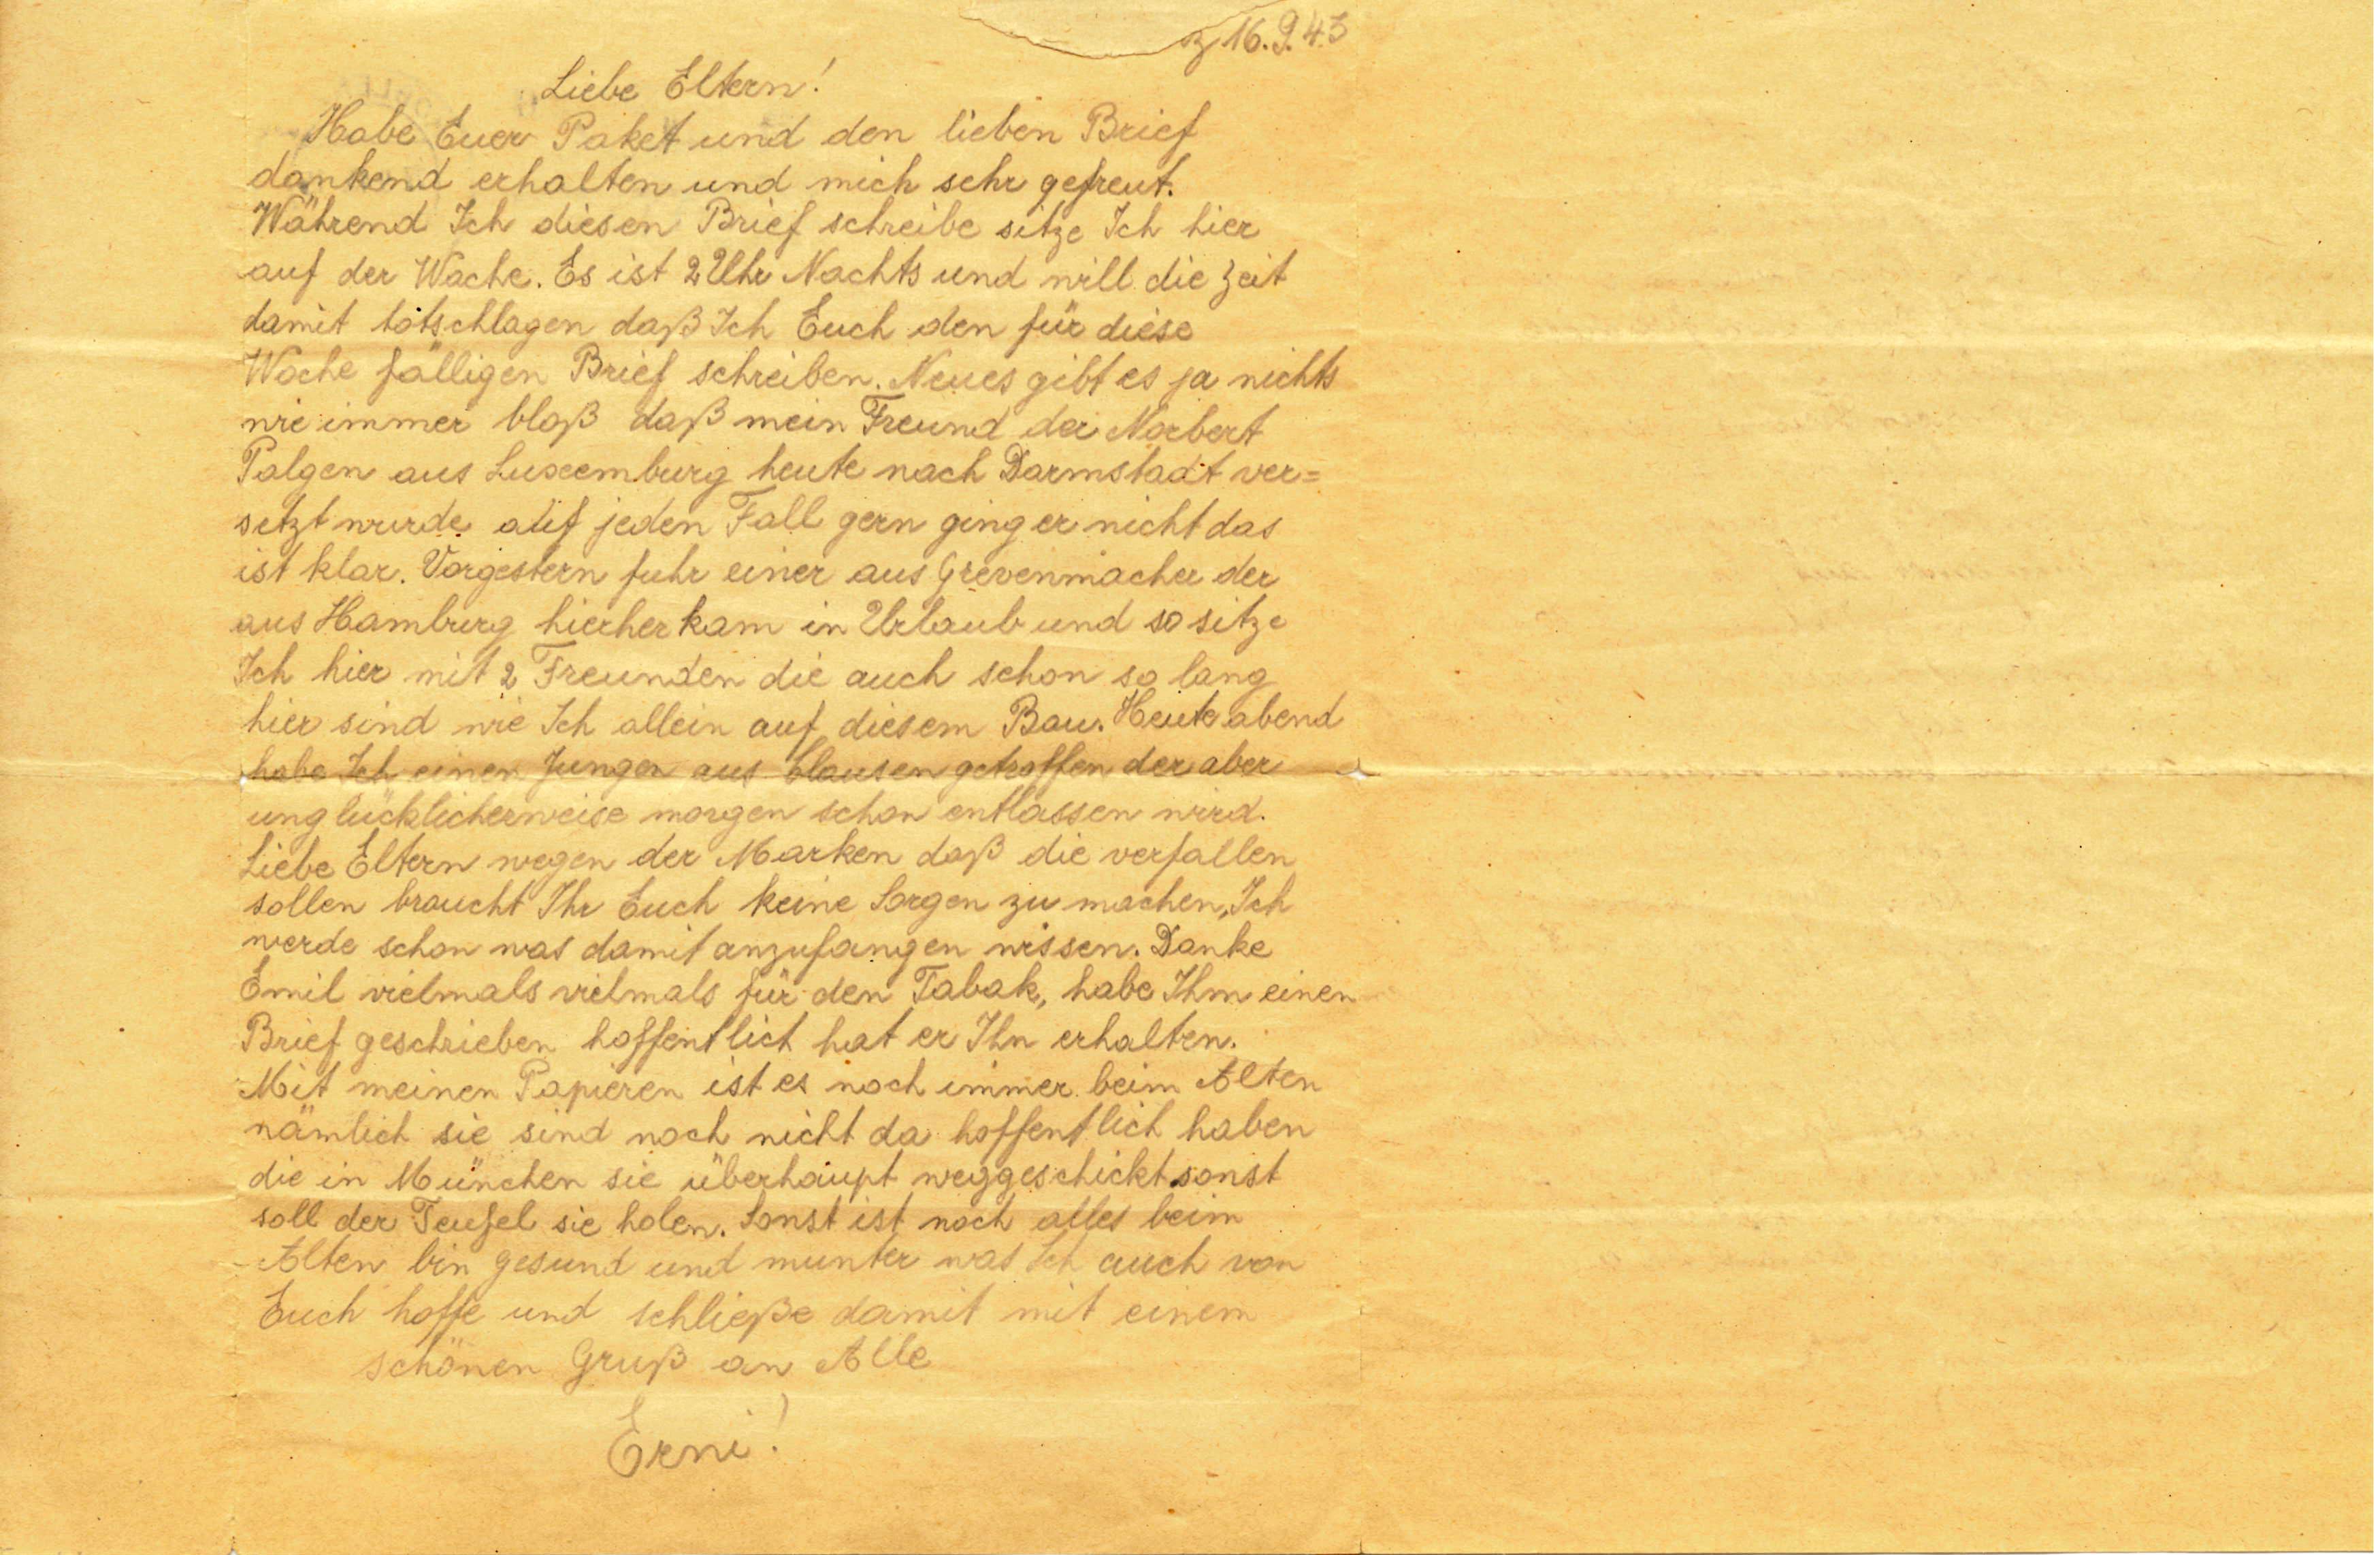 16.9.43
Liebe Eltern!
Habe Euer Paket und den lieben Brief
dankend erhalten und mich sehr gefreut.
Während Ich diesen Brief schreibe sitze Ich hier
auf der Wache. Es ist 2 Uhr Nachts und will die Zeit
damit totschlagen daß Ich Euch den für diese
Woche fälligen Brief schreiben. Neues gibt es ja nichts
wie immer bloß daß mein Freund der Norbert
Palgen aus Luxemburg heute nach Darmstadt ver=
setzt wurde auf jeden Fall gern ging er nicht das
ist klar. Vorgestern fuhr einer aus Grevenmacher der
aus Hamburg hierher kam in Urlaub und so sitze
Ich hier mit 2 Freunden die auch schon so lang
hier sind wie Ich allein auf diesem Bau. Heute abend
habe Ich einen Jungen aus Clausen getroffen der aber
unglücklicherweise morgen schon entlassen wird.
Liebe Eltern wegen der Marken daß die verfallen
sollen braucht Ihr Euch keine Sorgen zu machen, Ich
werde schon was damit anzufangen wissen. Danke
Emil vielmals vielmals für den Tabak, habe Ihm einen
Brief geschrieben hoffentlich hat er Ihn erhalten.
Mit meinen Papieren ist es noch immer beim Alten
nämlich sie sind noch nicht da hoffentlich haben
die in München sie überhaupt weggeschickt sonst
soll der Teufel sie holen. Sonst ist noch alles beim
Alten bin gesund und munter was Ich auch von
Euch hoffe und schließe damit mit einem
schönen Gruß an Alle
Erni!